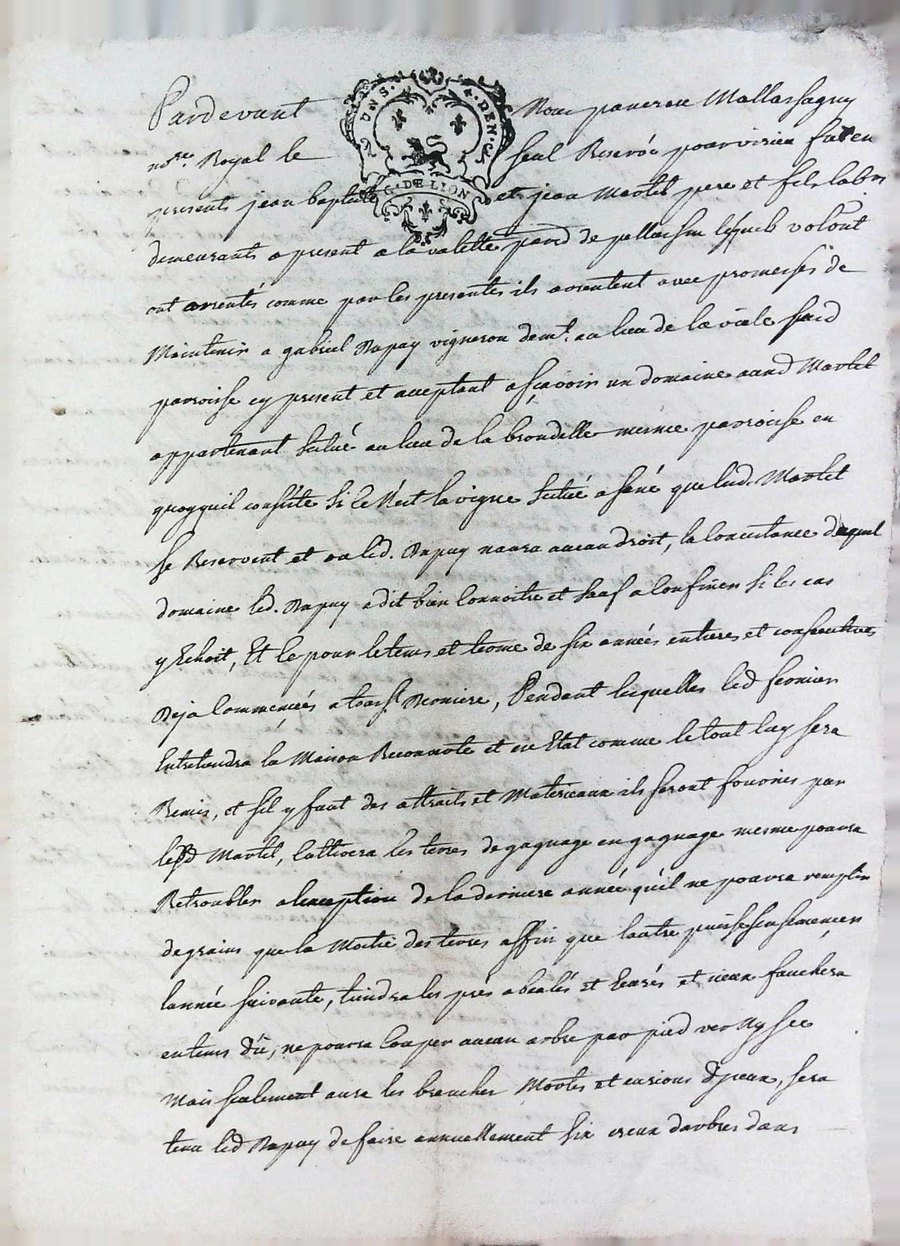 UN S. 4. DEN.
G. DE LION
Pardevant Nous Mallassagny
no.re Royal le seul Reservé pour virieu furen
presents jean baptiste et jean Martel pere et fils lab.rs
demeurants a present a la valette parr.d de pellassin lesqueb volont
ont arrentés comme par les presentes ils arrentent avec promesses de
Maintenir a gabriel Dupuy vigneron dem.t au lieu de la viale susd
parroisse cy present et acceptant a sçavoir un domaine auxd Martel
appartenant situé au lieu de la brondelle mesme parroisse en
quoyquil consiste si ce N'est la vigne située a que lesd. Martel
se Reservent et ou led. Dupuy naura aucun droit, la consistance duquel
domaine led. Dupuy a dit bien connoitre et sauf a confiner si le cas
y Echoit, Et le pour le tems et terme de six années entieres et consecutives
Deja Commencées a Derniere, Pendant lesquelles led fermier
Entretiendra la Maison Recouverte et en Etat comme le tout luy sera
Remis, et sil y faut des attraits et Materiaux ils seront fournis par
lesd Martel, Cultivera les terres de gagnage en gagnage mesme pourra
Retroubler a lexception de la derniere année qu'il ne pourra remplir
de grains que la Moitié des terres affin que lautre puisse sensemencer
lannée suivante, tiendra les prés abealés et Curés et iceux fauchera
en tems dû, ne pourra Couper aucun arbre par pied ver Ny sec
Mais seulement aura les branches Mortes et d'yceux, sera
tenu led Dupuy de faire annuellement six creux darbres dans